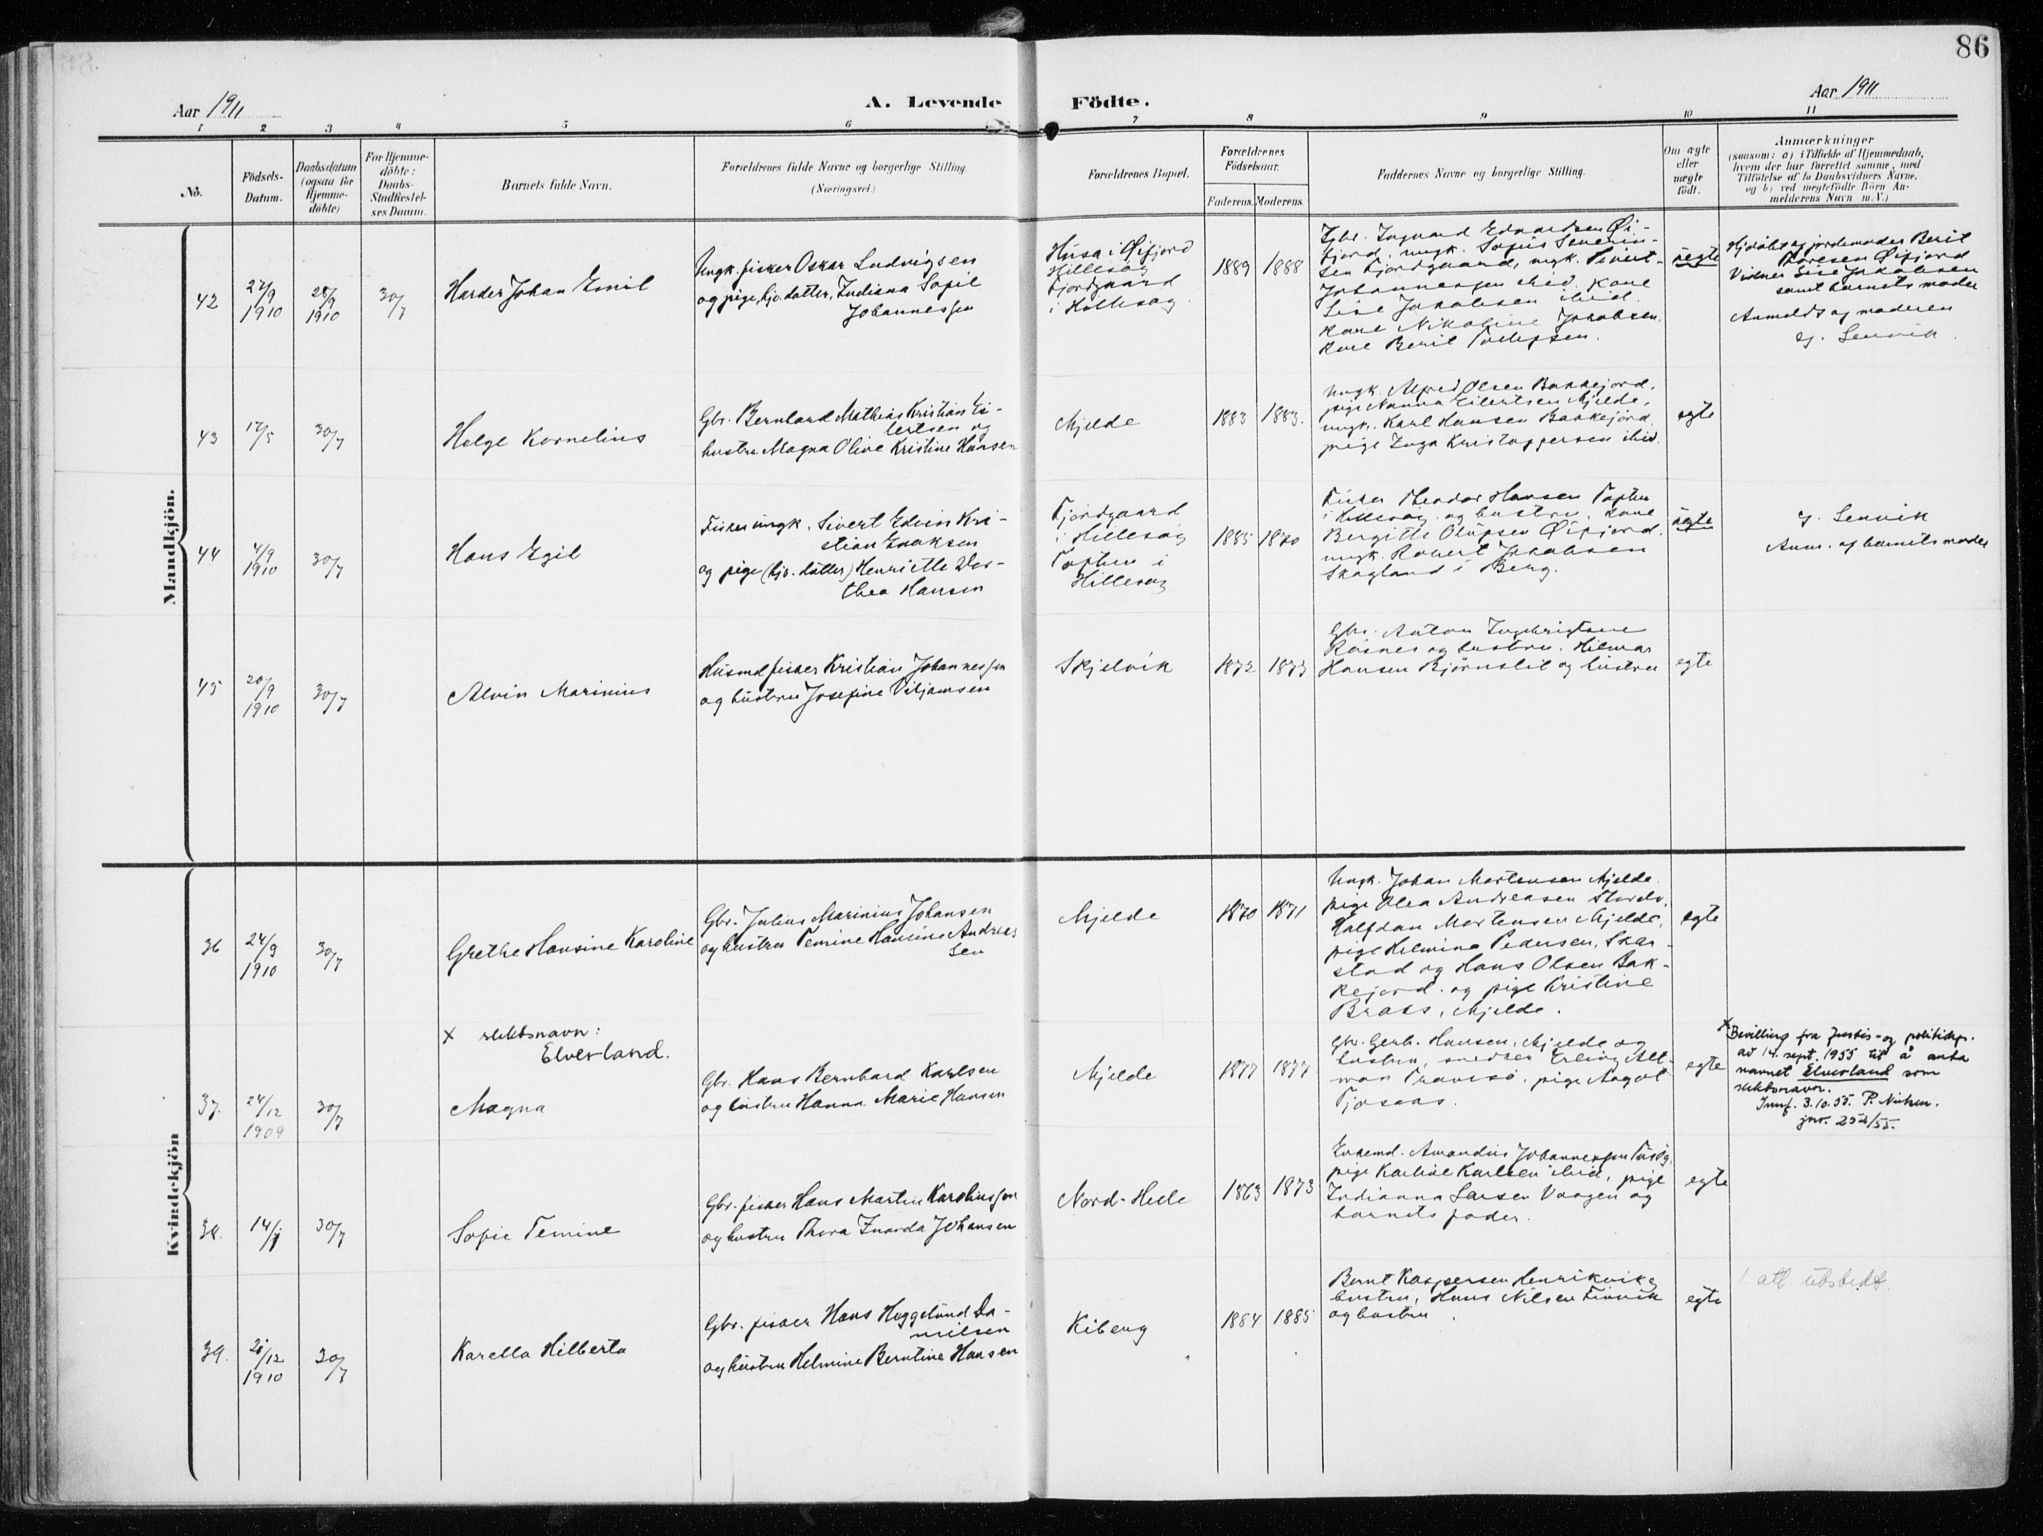 86
Aar 1911
A. Levende Födte.
Aar 1911
1 2 3 4 5 6 7 8 9 10 11
No.
Födsels-
Datum.
Daabsdatum
(ogsaa for
Hjemme-
döbte)
For Hjemme-
döbte:
Daabs-
Stadfæstel-
ses Datum.
Barnets fulde Navn.
Forældrenes fulde Navne og borgerlige Stilling.
(Næringsvei.)
Forældrenes Bopæl.
Forældrenes
Födselsaar.
Faderens. Moderens.
Faddernes Navne og borgerlige Stilling.
Om ægte
eller
uægte
födt.
Anmærkninger
(saasom: a) i Tilfælde af Hjemmedaab,
hvem der har forrettet samme, med
Tilföielse af to Daabsvidners Navne,
og b) ved uægtefödte Börn An-
melderens Navn m. V.)
Mandkjön.
42
27/9
1910
28/9
1910
30/7
Harder Johan Emil
Ungk. fisker Oskar Ludvigsen
og pige, hjv. datter, Indiana Sofie
Johannessen
Husa i Øifjord
Hillesøg
Fjordgaard
i Hillesøg
1889
1888
Gbr. Ingvard Edvardsen Øi-
fjord, ungk. Sofus Severin-
sen Fjordgaard, ungk. Sivert
Johannessen ibid. kone
Lise Jakobsen ibid.
kone Nikoline Jakobsen,
kone Berit
uegte
Hjdøbt af jordemoder Berit
Øifjord
Vidner Lise Jakobsen
samt barnets moder
Anmeldt af moderen
Lenvik
43
17/5
30/7
Helge Kornelius
Gbr. Bernhard Mathias Kristian Ei-
lertsen og
hustru Magna Olive Kristine Hansen
Mjelde
1883
1883.
Ungk. Alfred Olsen Bakkejord,
pige Nanna Eilertsen Mjelde,
ungk. Karl Hansen Bakkejord
pige Inga Kristoffersen ibid.
egte
44
4/9
1910
30/7
Hans Egil
Fisker ungk. Sivert Edvin Kri-
stian Isaksen
og pige (hjv. datter) Henriette Do-
thea Hansen
Fjordgaard
i Hillesøg
Toften i
Hillesøg
1885
1870
Fisker Theodor Hansen Toften
i Hillesøg og hustru, kone
Bergitte Olufsen Øifjord.
ungk. Robert Jakobsen
Skagland i Berg.
uegte
Lenvik
Anm. af barnets moder
45
20/9
1910
30/7
Alvin Marinius
Husmd fisker Kristian Johannessen
og hustru Josefine Viljamsen
Skjelvik
1872
1873
Gbr. Anton Ingebrigtsen
Røsnes og hustru, Hilmar
Hansen Bjørnslet og hustru
egte
Kvindekjön
36
24/9
1910
30/7
Grethe Hansine Karoline
Gbr. Julius Marinius Johansen
og hustru Temine Hansine Andreas
sen
Mjelde
1870
1871
Ungk. Johan Mortensen Mjelde.
pige Olea Andreasen
Halfdan Mortensen Mjelde,
pige Helmina Pedersen, Skar-
stad og Hans Olsen Bak-
kejord. og pige Kristine
Braks, Mjelde.
egte
x slektsnavn:
Elverland.
37.
24/12
1909
30/7
Magna
Gbr. Hans Bernhard Karlsen
og hustru Hanna Marie Hansen
Mjelde
1877
1877
Gbr. Gerh. Hansen, Mjelde og
hustru, snedker Erling Alt-
man Tromsø, pige Aagot
Tjosaas.
egte
x Bevilling fra justis- og politidep.
av 14. sept. 1955 til å anta
navnet Elverland som
slektsnavn.
Innf. 3.10.55. P. Nielsen.
jnr. 252/55.
38.
14/1
30/7
Sofie Temine
Gbr. fisker Hans Martin Karoliussen
og hustru Thora Johansen
Nord-Hele
1863
1873
Amandus Johannessen
pige Karline Karlsen ibid, pige
Indianna Larsen Vaagen og
barnets fader.
egte
39.
21/12
1910
30/7
Karella Hilberta
Gbr. fisker Hans Heggelund Da-
nielsen
og hustru Helmine Berntine Hansen
Kiberg
1884
1885
Bernt Kaspersen Henrikvik og
hustru, Hans Nilsen Finvik
og hustru.
egte
1. att. utstedt.